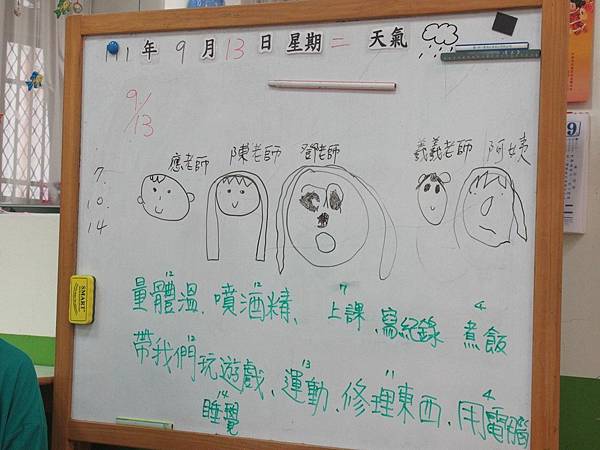 111年9月13日星期二 天氣
9/13
應老師 陳老師 鄧老師 羲羲老師 阿姨
7.
10.
14
12 12 7 4
量體溫、噴酒精、上課、寫紀錄 煮飯
12 13 11 4
帶我們玩遊戲、運動、修理東西、用電腦
14
睡覺
SMART
9